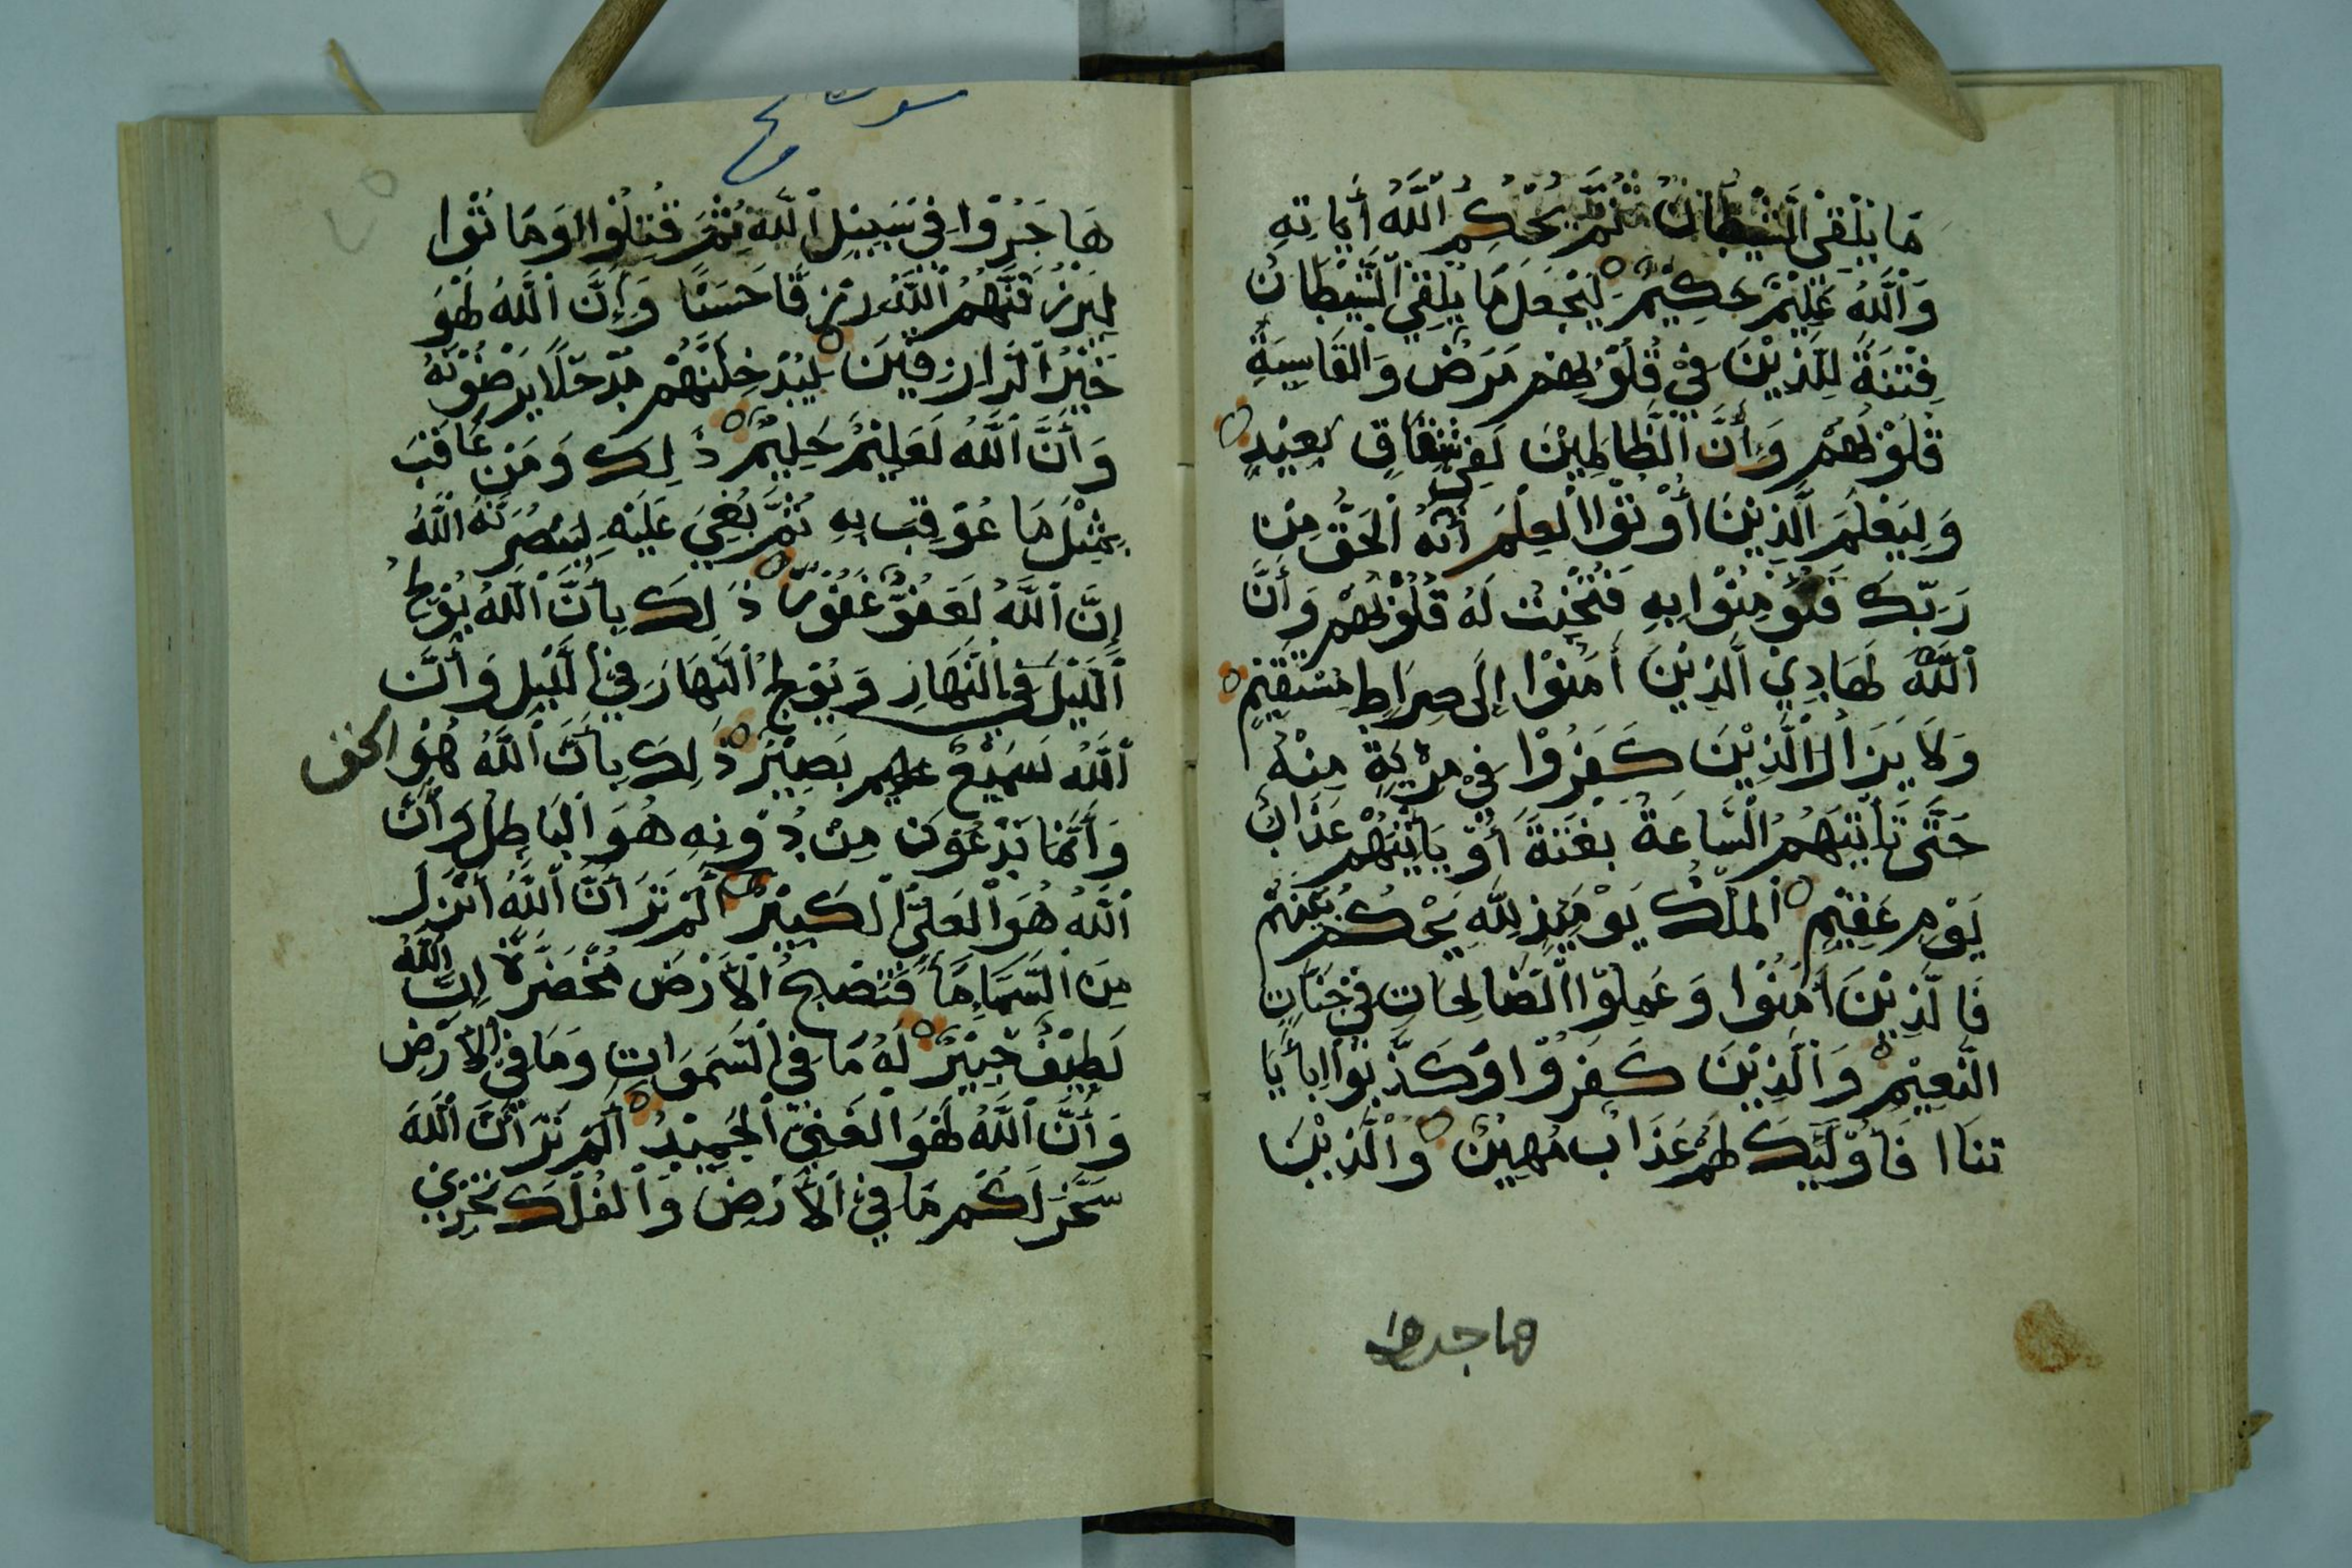 مَا يُلْقِي الشَّيْطَانُ ثُمَّ يُحْكِمُ اللَّهُ أَيَاتِهِ
وَاللَّهُ عَلِيْمٌ حَكِيْمٌ لِيَجْعَلَ مَا يُلْقِي الشَّيْطَانُ
فِتْنَةً لِلَّذِيْنَ فِيْ قُلُوْبِهِمْ مَرَضٌ وَالْقَاسِيَةِ
قُلُوْبُهُمْ وَإِنَّ الظَّالِمِيْنَ لَفِي شِقَاقٍ بَعِيْدٍ
وَلِيَعْلَمَ الَّذِيْنَ أُوْتُوْا الْعِلْمَ أَنَّهُ الْحَقُّ مِنْ
رَبِّكَ فَيُؤْمِنُوْا بِهِ فَتُخْبِتَ لَهُ قُلُوْبُهُمْ وَأَنَّ
اللَّهَ لَهَادِي الَّذِيْنَ أَمَنُوْا إِلَى صِرَاطٍ مُسْتَقِيْمٍ
وَلَا يَزَالُ الَّذِيْنَ كَفَرُوْا فِيْ مِرْيَةٍ مِنْهُ
حَتَّى تَأْتِيَهُمُ السَّاعَةُ بَغْتَةً أَوْ يَأْتِيَهُمْ عَذَابُ
يَوْمٍ عَقِيْمٍ الْمُلْكُ يَوْمَئِذٍ لِلَّهِ يَحْكُمُ بَيْنَهُمْ
فَالَّذِيْنَ أَمَنُوْا وَعَمِلُوْا الصَّالِحَاتِ فِيْ جَنَّاتِ
النَّعِيْمِ وَالَّذِيْنَ كَفَرُوْا وَكَذَّبُوْا بِأَيَا
تِنَا فَأُوْلَئِكَ لَهُمْ عَذَابٌ مُهِيْنٌ وَالَّذِيْنَ
هاجروا
سورت حج
٧٥
هَاجَرُوْا فِيْ سَبِيْلِ اللَّهِ ثُمَّ قُتِلُوْا أَوْ مَاتُوْا
لَيَرْزُقَنَّهُمُ اللَّهُ رِزْقًا حَسَنًا وَإِنَّ اللَّهَ لَهُوَ
خَيْرُ الرَّازِقِيْنَ لَيُدْخِلَنَّهُمْ مُدْخَلًا يَرْضَوْنَهُ
وَأَنَّ اللَّهَ لَعَلِيْمٌ حَلِيْمٌ ذَلِكَ وَمَنْ عَاقَبَ
بِمِثْلِ مَا عُوْقِبَ بِهِ ثُمَّ بُغِيَ عَلَيْهِ لَيَنْصُرَنَّهُ اللَّهُ
إِنَّ اللَّهَ لَعَفُوٌّ غَفُوْرٌ ذَلِكَ بِأَنَّ اللَّهَ يُوْلِجُ
اللَّيْلَ فِي النَّهَارِ وَيُوْلِجُ النَّهَارَ فِي اللَّيْلِ وَأَنَّ
اللَّهَ سَمِيْعٌ عليم بَصِيْرٌ ذَلِكَ بِأَنَّ اللَّهَ هُوَ الحق
وَأَنَّمَا يَدْعُوْنَ مِنْ دُوْنِهِ هُوَ الْبَاطِلُ وَأَنَّ
اللَّهَ هُوَ الْعَلِيُّ الْكَبِيْرُ أَلَمْ تَرَ أَنَّ اللَّهَ أَنْزَلَ
مِنَ السَّمَاءِ مَاءً فَتُصْبِحُ الْأَرْضُ مُخْضَرَّةً إِنَّ اللَّهَ
لَطِيْفٌ خَبِيْرٌ لَهُ مَا فِي السَّمَوَاتِ وَمَا فِي الْأَرْضِ
وَأَنَّ اللَّهَ لَهُوَ الْغَنِيُّ الْحَمِيْدُ أَلَمْ تَرَ أَنَّ اللَّهَ
سَخَّرَ لَكُمْ مَا فِي الْأَرْضِ وَالْفُلْكَ تَجْرِيْ